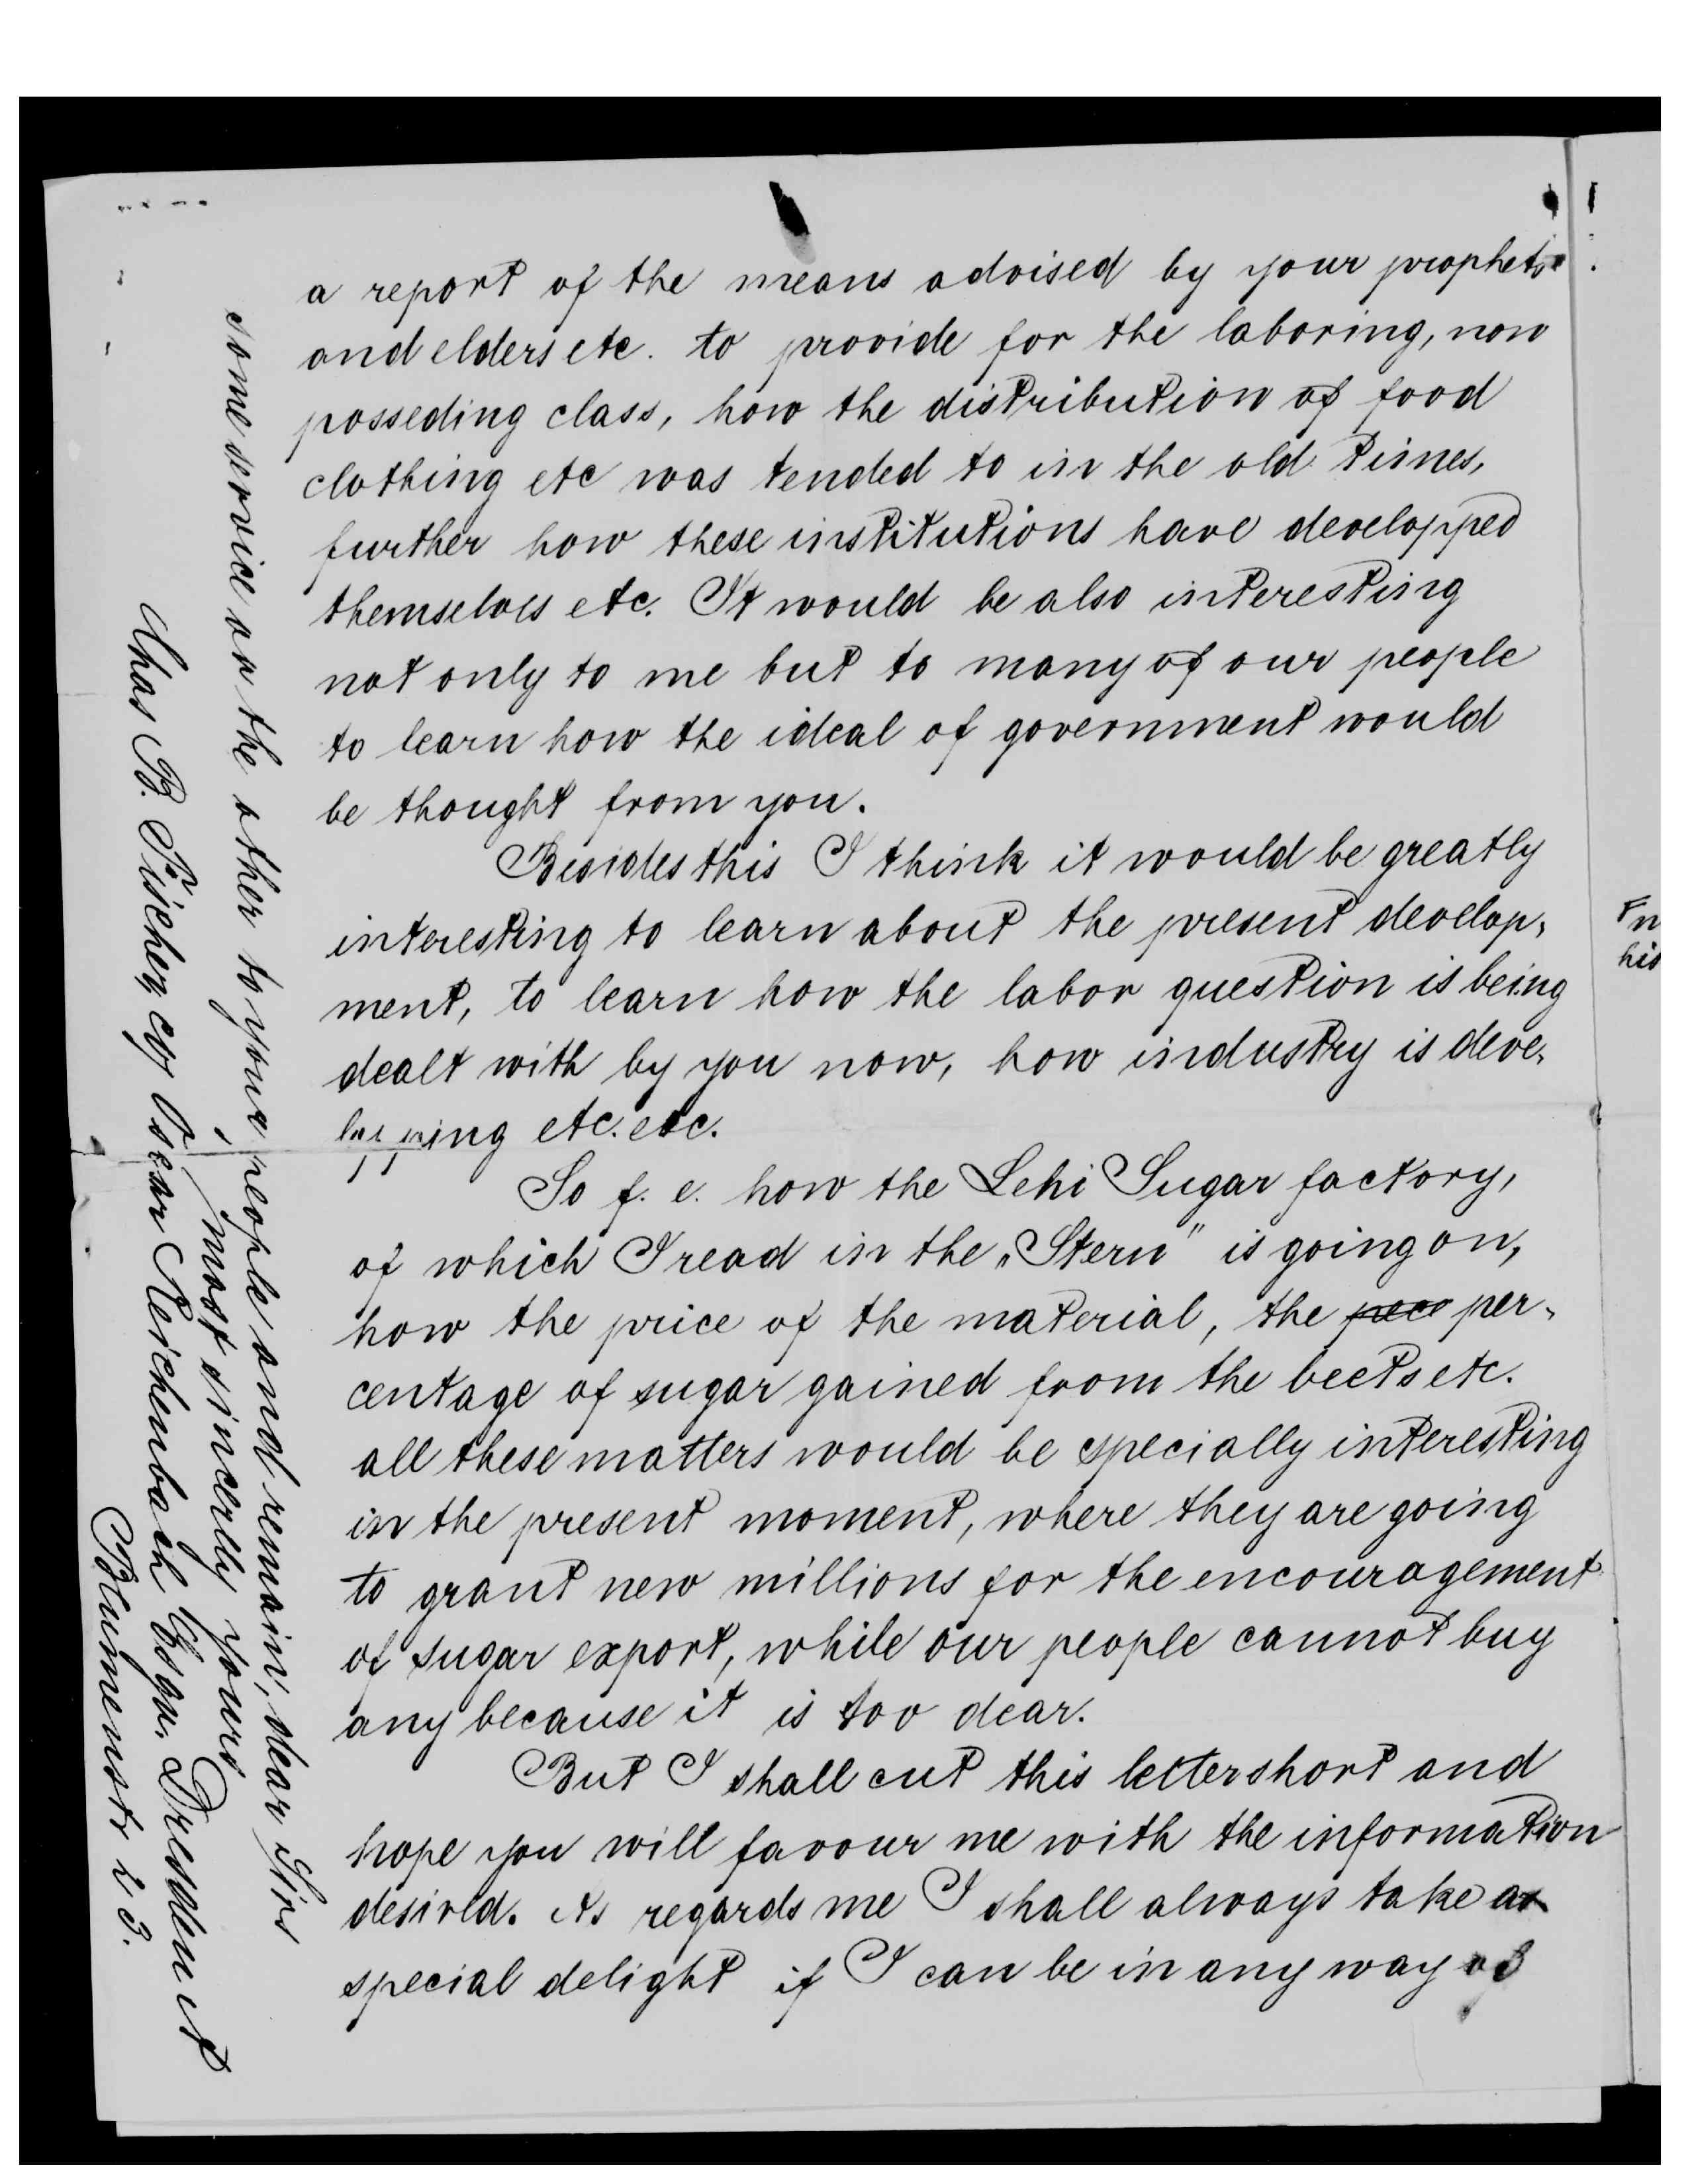 a report of the means advised by your prophets
and elders etc. to provide for the laboring, non
posseding class, how the distribution of food
clothing etc was tended to in the old times,
further how these institutions have developped
themselves etc. It would be also interesting
not only to me but to many of our people
to learn how the ideal of government would
be thought from you.
Besides this I think it would be greatly
interesting to learn about the present develop-
ment, to learn how the labor question is being
dealt with by you now, how industry is deve-
lopping etc. etc.
So f. e. how the Lehi Sugar factory,
of which I read in the „Stern" is going on,
how the price of the material, the per-
centage of sugar gained from the beets etc.
all these matters would be specially interesting
in the present moment, where they are going
to grant new millions for the encouragement
of sugar export, while our people cannot buy
any because it is too dear.
But I shall cut this letter short and
hope you will favour me with the information
desired. As regards me I shall always take a
special delight if I can be in any way of
some service or the other to your people and remain, dear Sirs
most sincerely yours
Chas B. Fischer, c/o Oscar Reichenbach Esqu. Dresden
Blumenstr
Fn
his